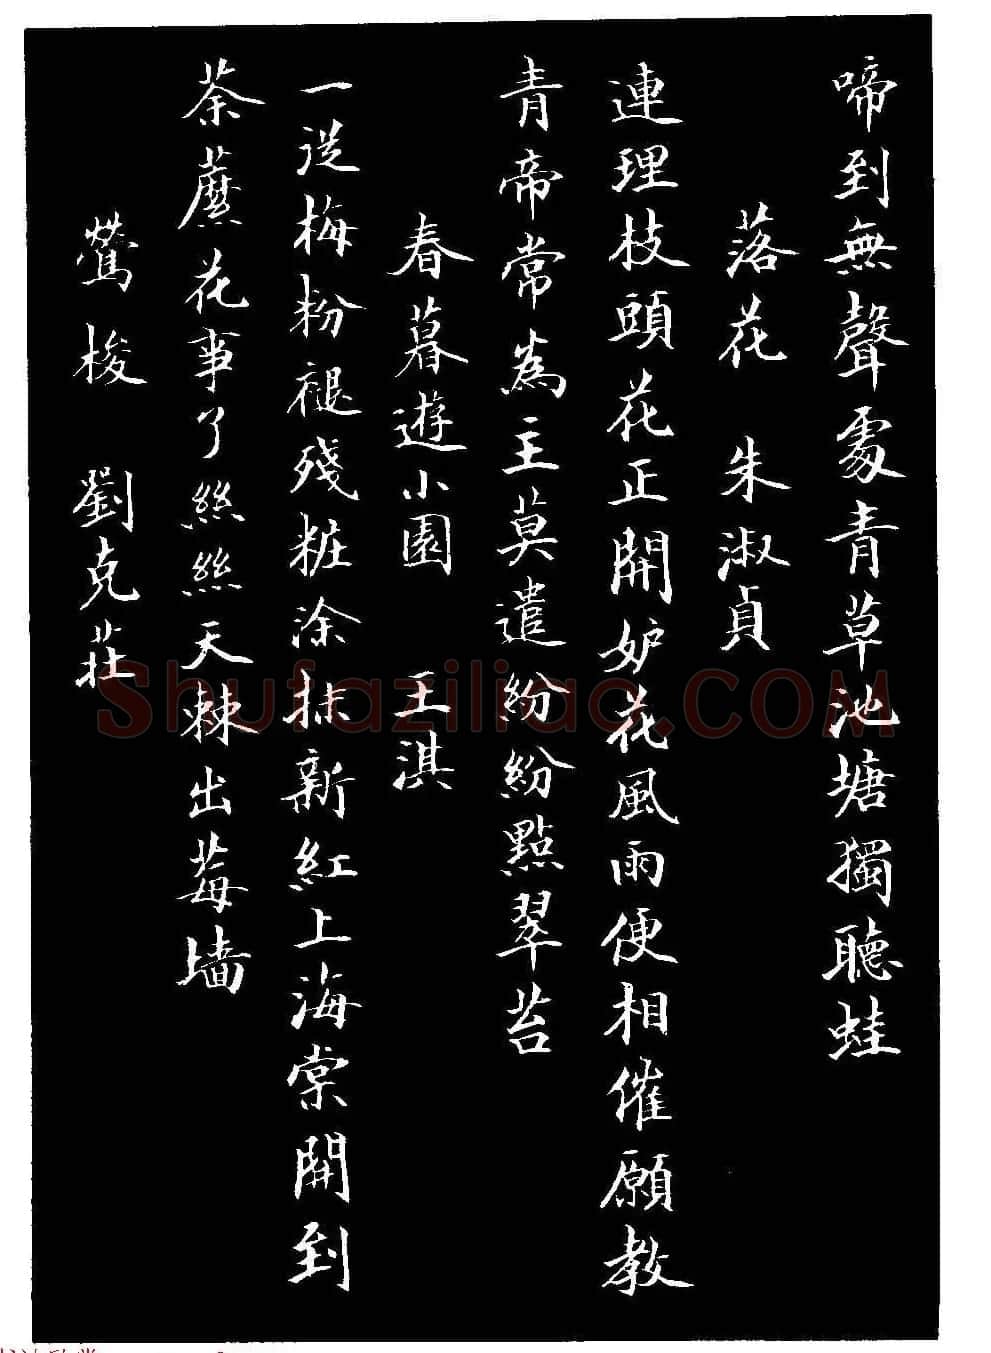 啼到無聲處青草池塘獨聽蛙
落花 朱淑貞
連理枝頭花正開妒花風雨便相催願教
青帝常為主莫遣紛紛點翠苔
春暮遊小園 王淇
一從梅粉褪殘粧涂抹新紅上海棠開到
荼蘼花事了絲絲天棘出莓墙
鶯梭 劉克莊
Shufaziliao.COM